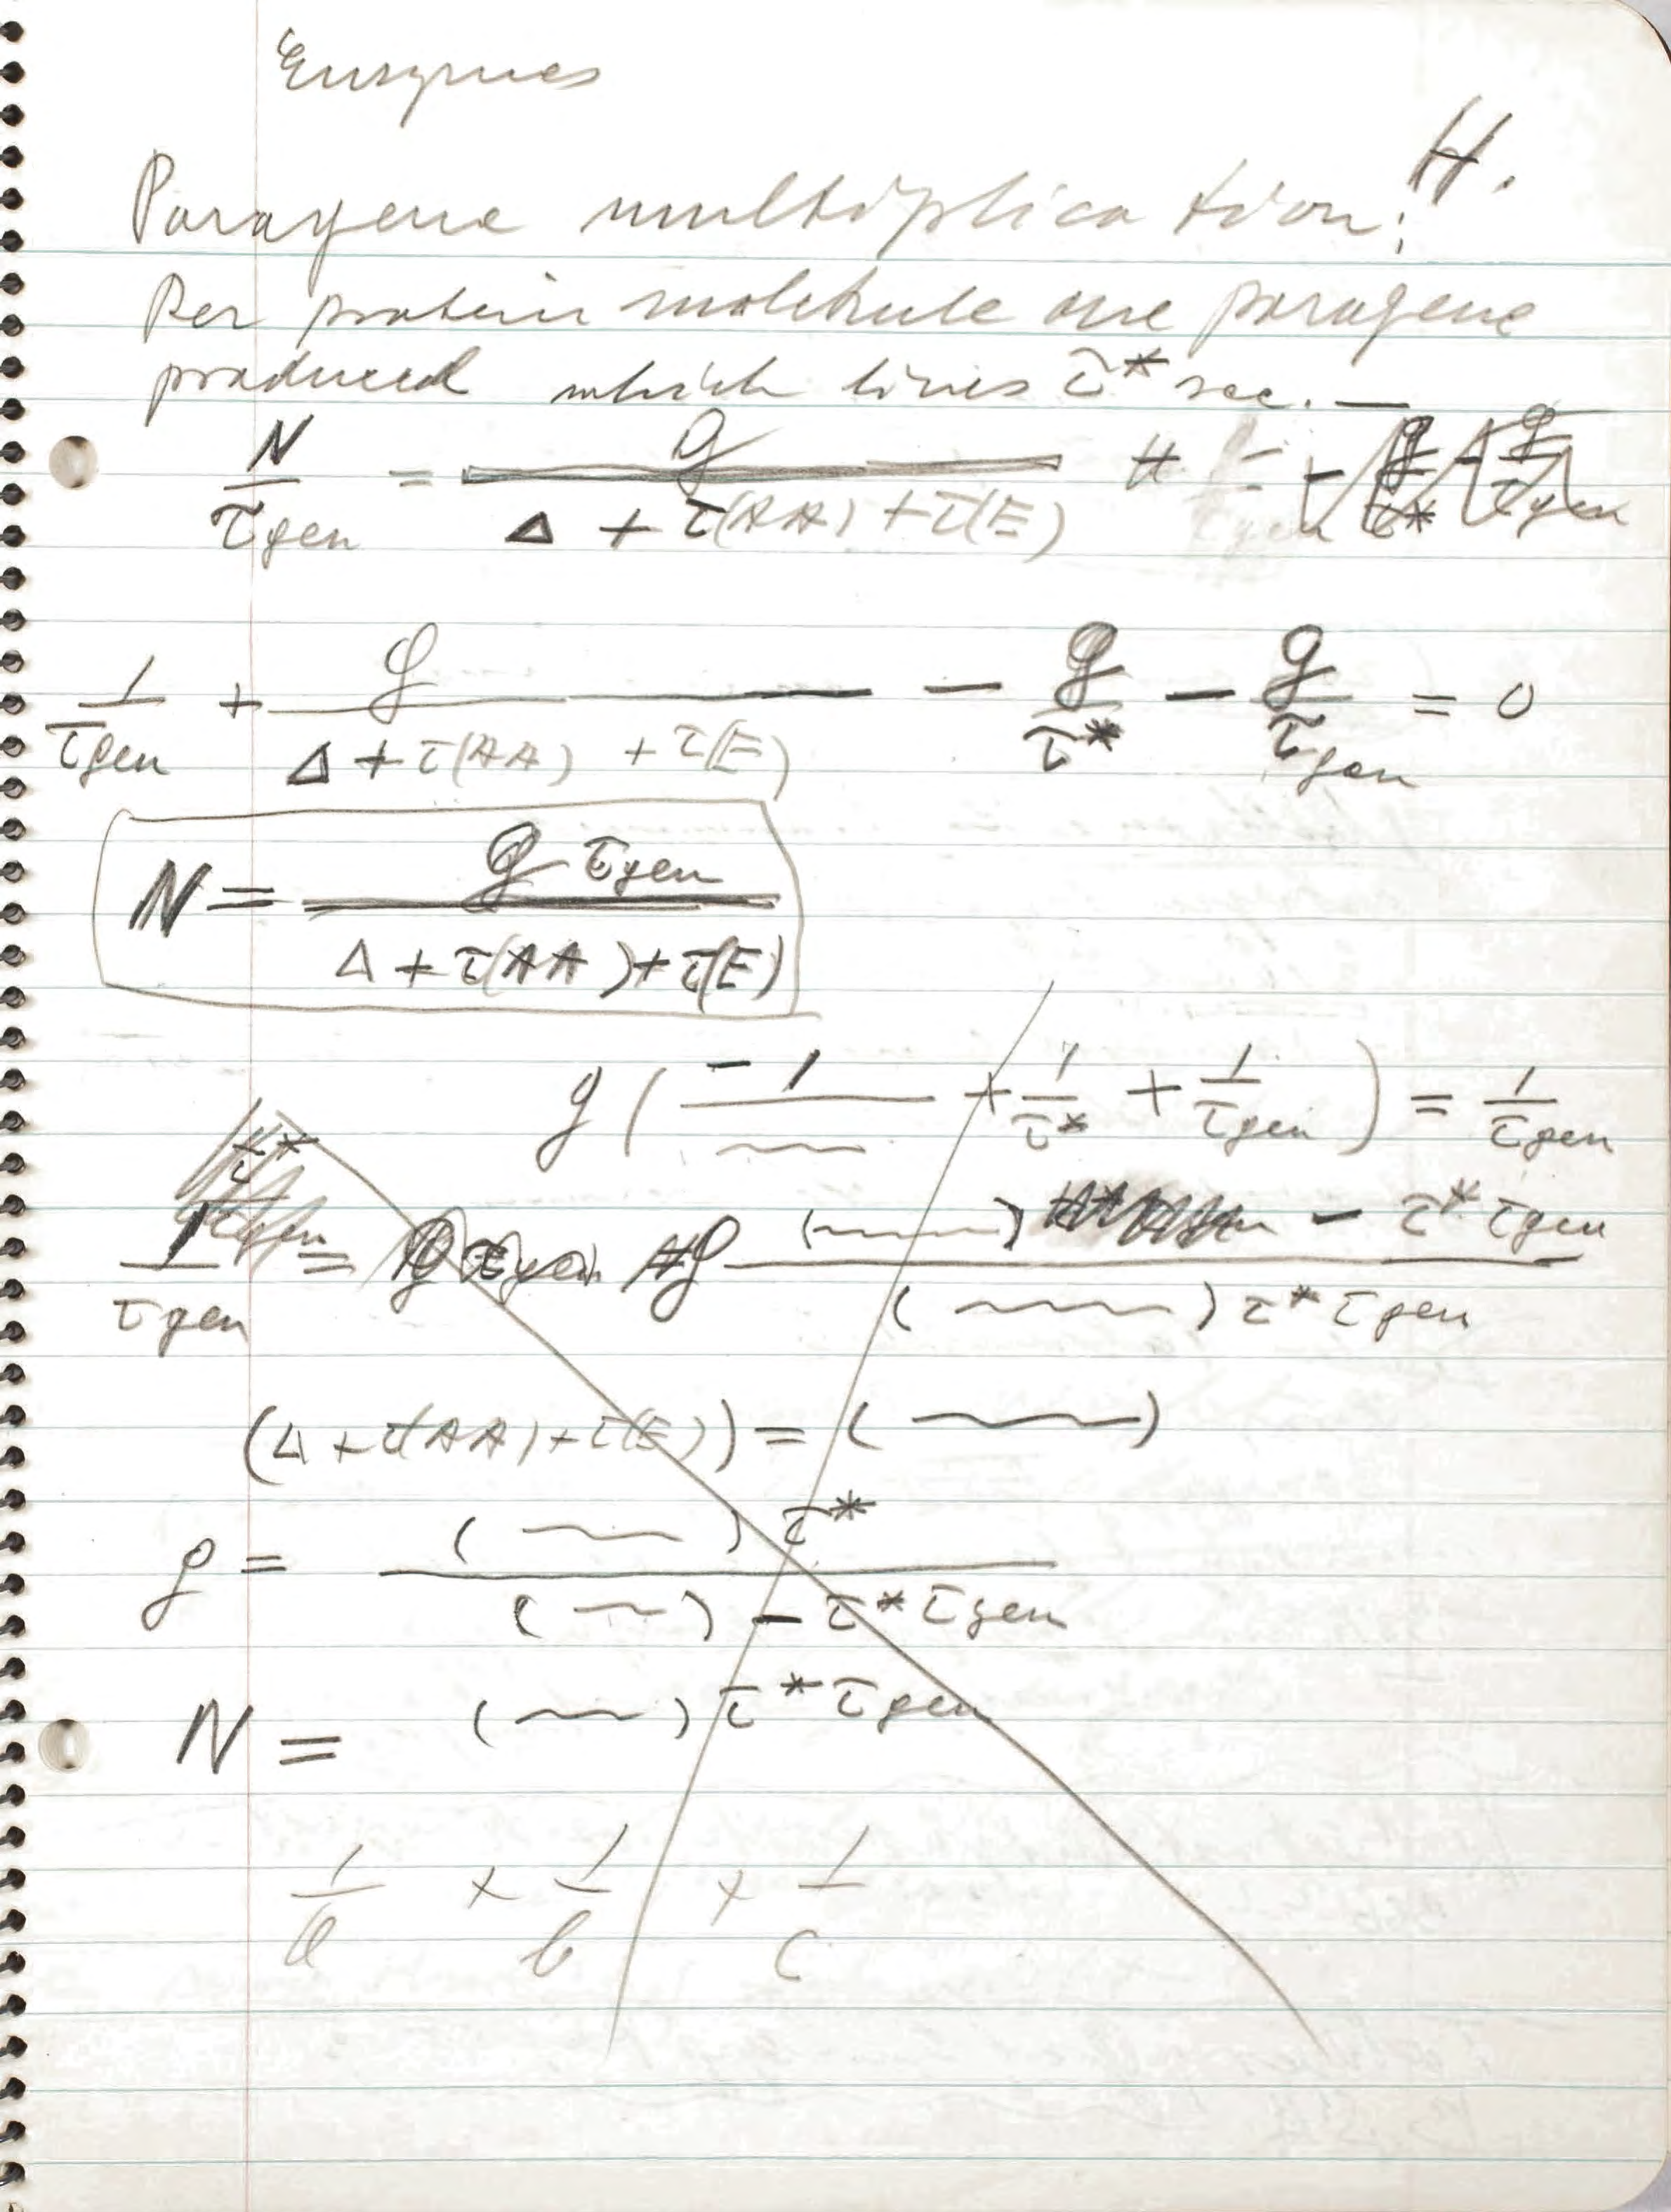 Enzymes
H.
Paragene multiplication:
Per protein molekule one paragene
produced which lives τ* sec. —
N/τgen = g/(Δ + τ(AA) + τ(E))
1/τgen + g/(Δ + τ(AA) + τ(E)) — g/τ* — g/τgen = 0
N = g τgen/(Δ + τ(AA) + τ(E))
g ( -1/~~~ + 1/τ* + 1/τgen ) = 1/τgen
1/τgen = g ((~~~) - τ* τgen)/((~~~) τ* τgen)
(Δ + τ(AA) + τ(E)) = (~~~)
g = (~~~) τ*/((~~~) - τ* τgen)
N = (~~~) τ* τgen
1/a + 1/b + 1/c